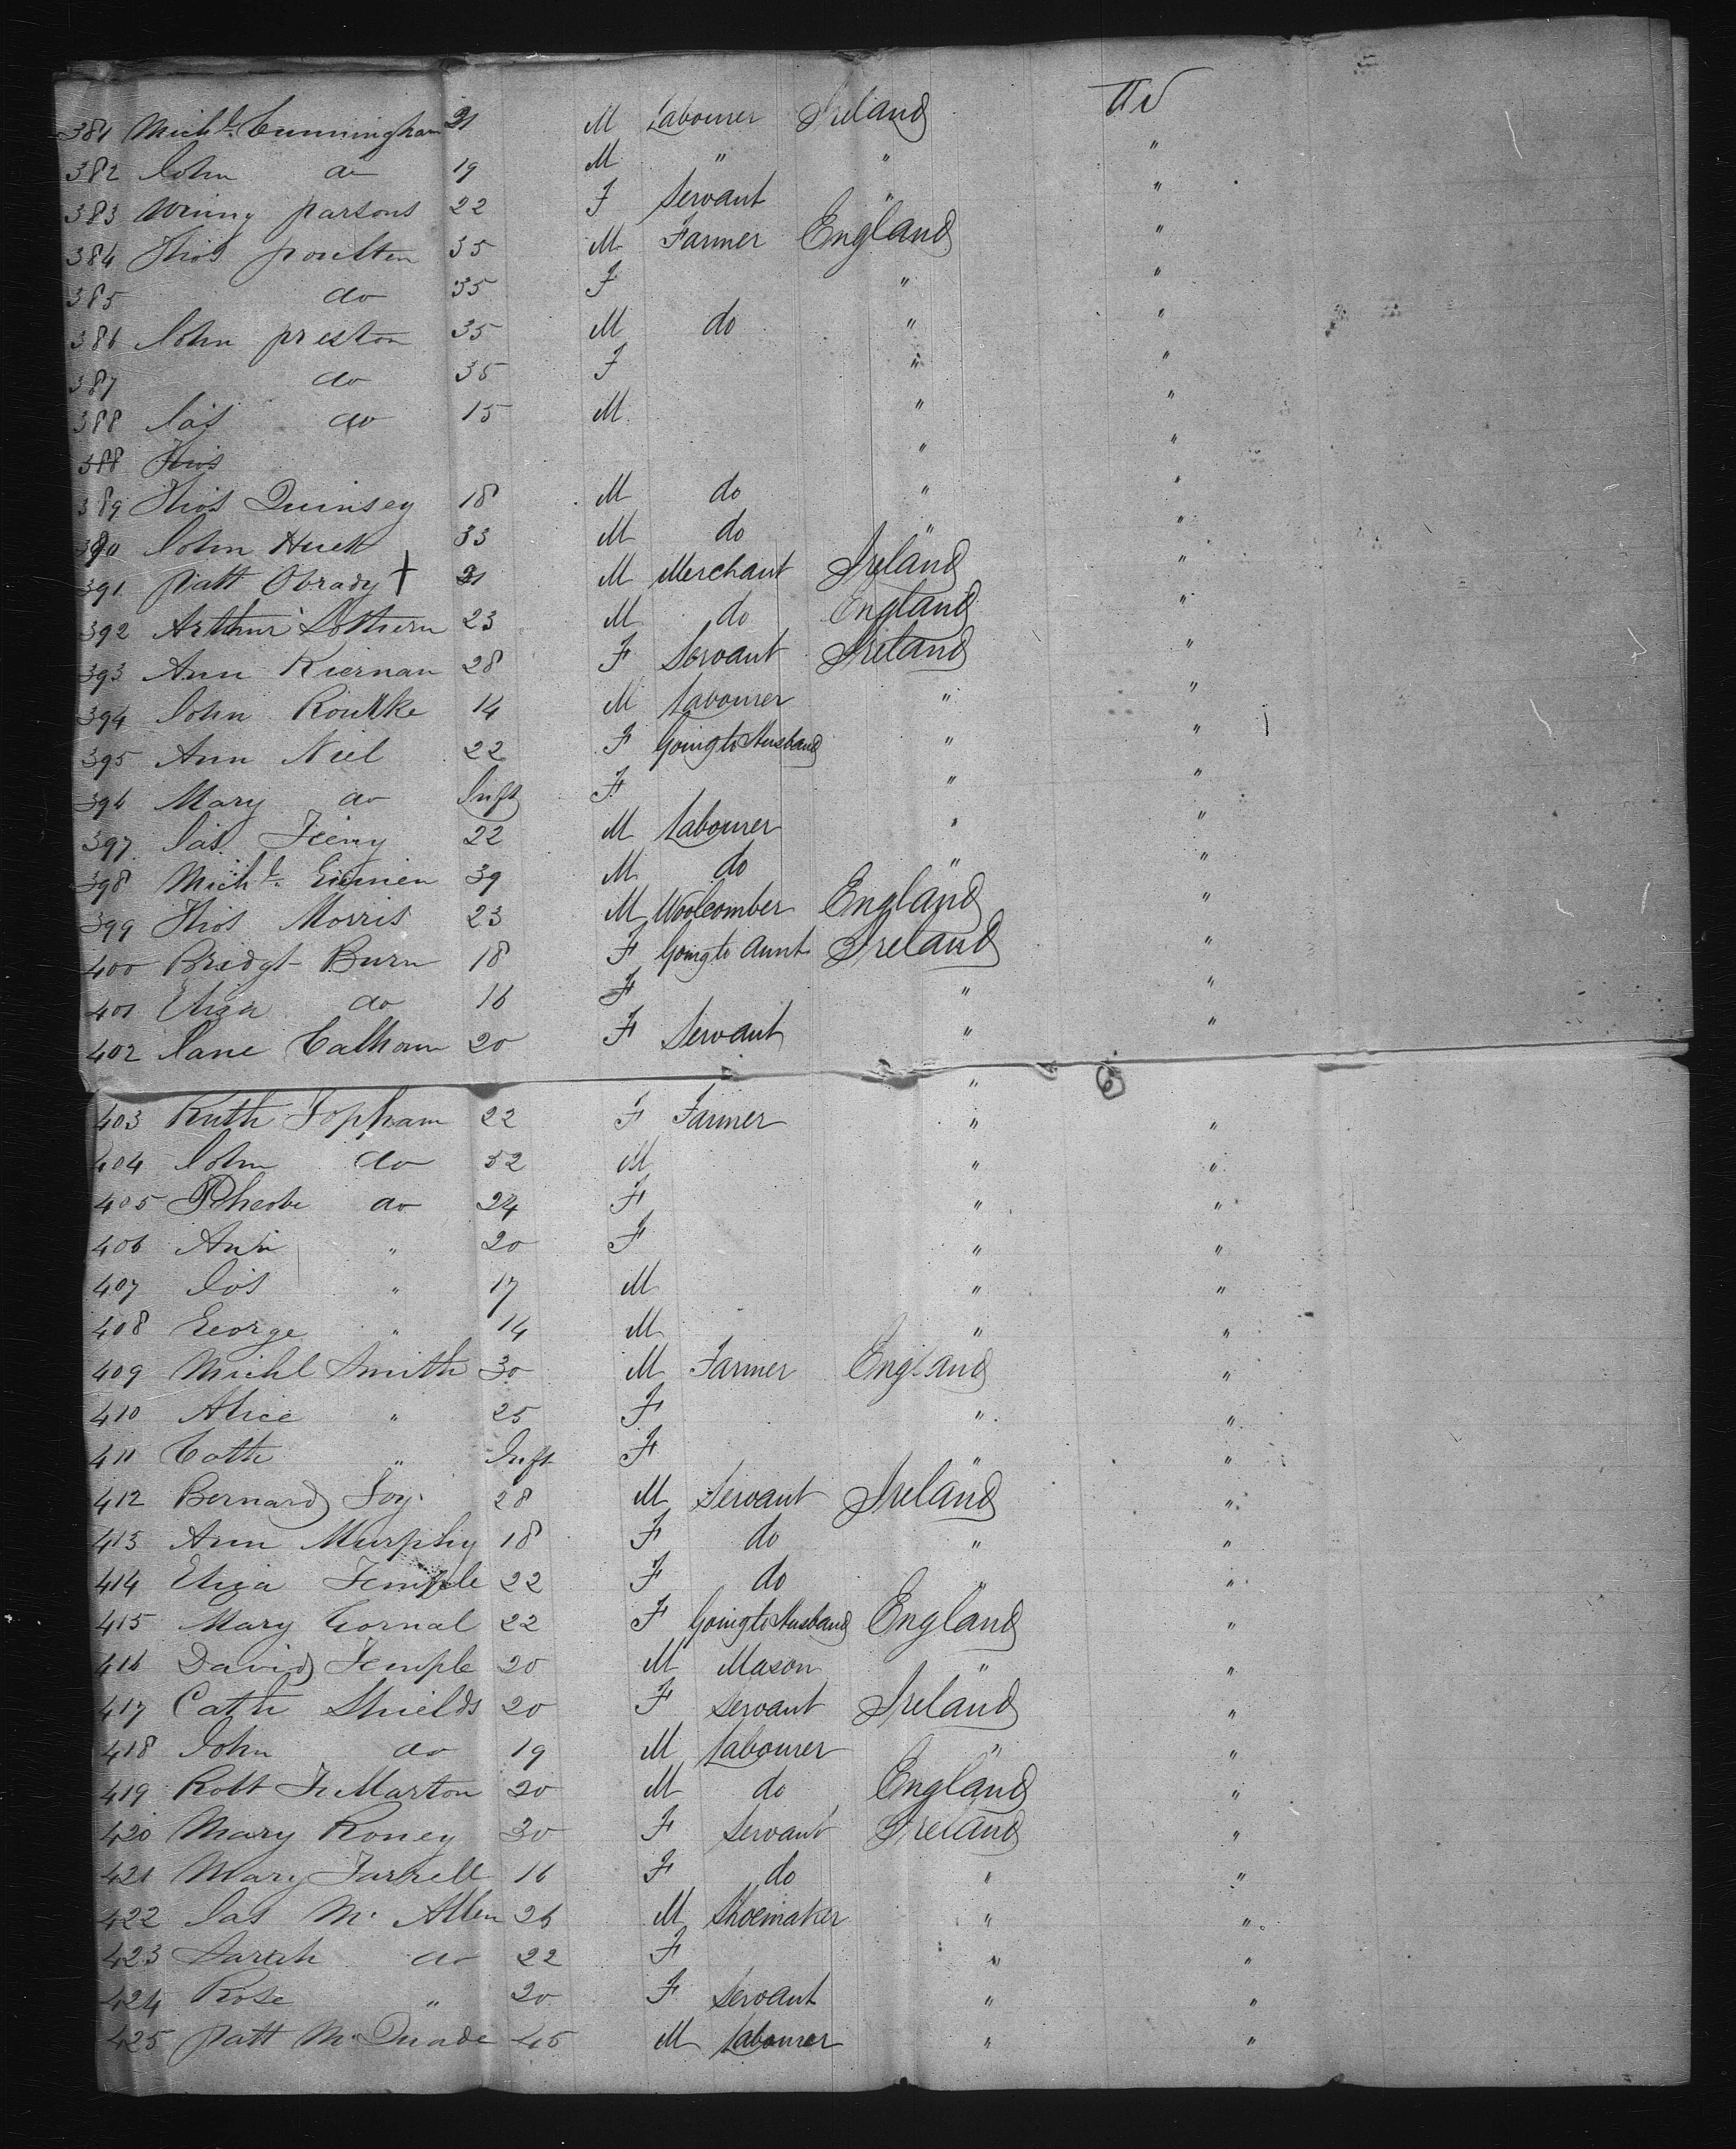 381 Michl. Cunningham 21 M Labourer Ireland US
382 John do 19 M " " "
383 Winny parsons 22 F Servant " "
384 Thos poulten 35 M Farmer England "
385 do 35 F " "
386 John preston 35 M do " "
387 do 35 F " "
388 Jas do 15 M " "
388 Thos " "
389 Thos Quinsey 18 M do " "
390 John Huck 33 M do " "
391 patt Obrady + 21 M Merchant Ireland "
392 Arthur Sothern 23 M do England "
393 Ann Kiernan 28 F Servant Ireland "
394 John Rourke 14 M Labourer " "
395 Ann Niel 22 F Going to Husband " "
396 Mary do Inft F " "
397 Jas Feeny 22 M Labourer " "
398 Michl. 39 M do " "
399 Thos Morris 23 M Woolcomber England "
400 Bridgt Burn 18 F Going to Aunt Ireland "
401 Eliza do 16 F " "
402 Jane Calhoun 20 F Servant " "
6 "
403 Ruth Topham 22 F Farmer " "
404 John do 52 M " "
405 Pheobe do 24 F " "
406 Ann " 20 F " "
407 Jos " 17 M " "
408 George " 14 M " "
409 Michl Smith 30 M Farmer England "
410 Alice " 25 F " "
411 Cath " Inft F " "
412 Bernard Foy 28 M Servant Ireland "
413 Ann Murphy 18 F do " "
414 Eliza Temple 22 F do " "
415 Mary Cornal 22 F Going to Husband England "
416 David Temple 20 M Mason " "
417 Cath Shields 20 F Servant Ireland "
418 John do 19 M Labourer " "
419 Robt Marton 20 M do England "
420 Mary Roney 30 F Servant Ireland "
421 Mary Farrell 16 F do " "
422 Jas Mc Allen 26 M Shoemaker " "
423 Sarah do 22 F " "
424 Rose " 20 F Servant " "
425 patt Mc Quade 45 M Labourer " "